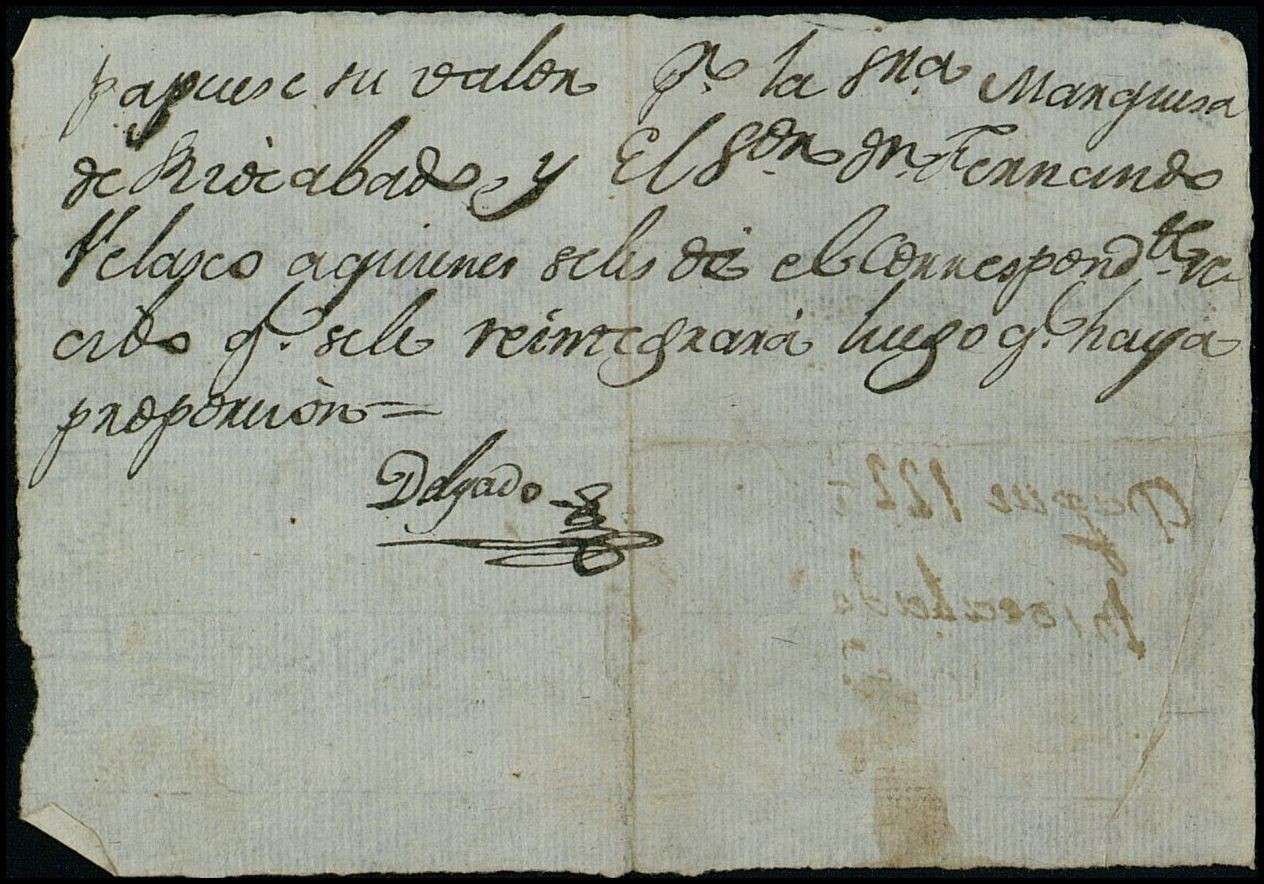 papuese su valor pr. la Sra. Marquesa
de Riocabado, y El Sor. Dn. Fernando
Velasco aquienes seles dé el Correspondte. re-
cibo q. sele reintegrará luego q. haya
proporcion =
Delgado